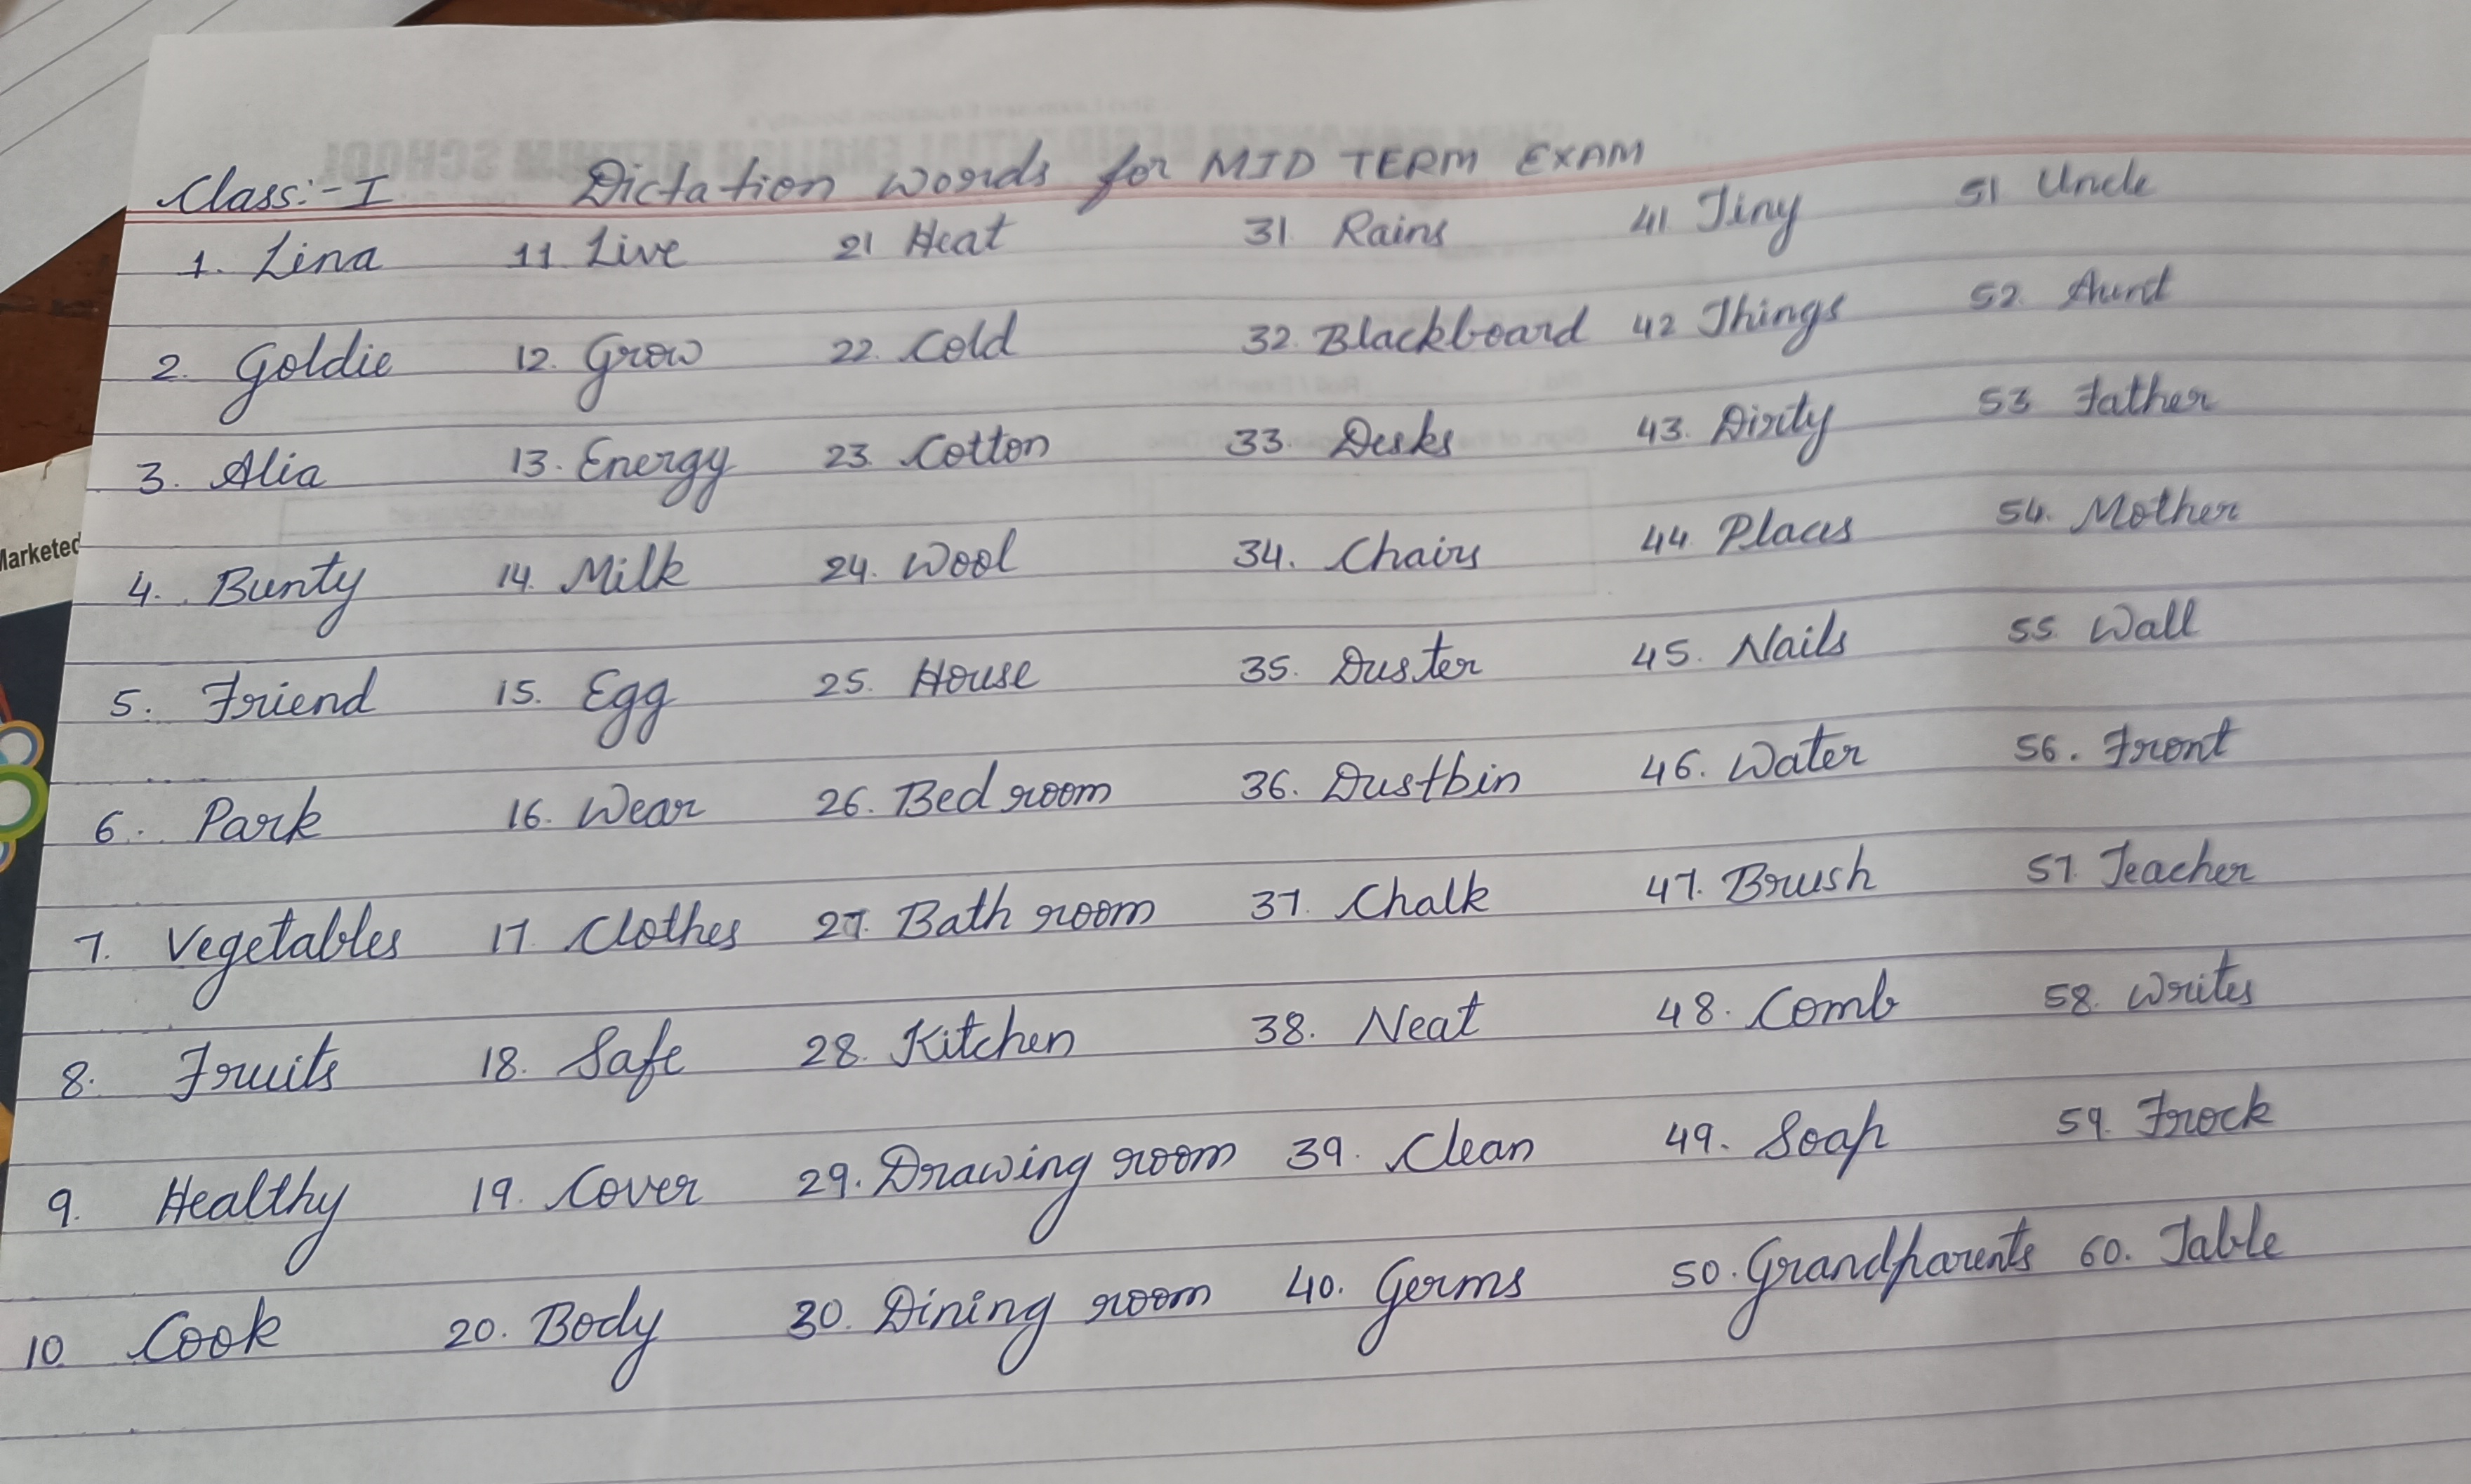 Class:- I Dictation words for MID TERM EXAM
1. Lina 11. Live 21 Heat 31. Rains 41. Tiny 51 Uncle
2. Goldie 12. Grow 22. Cold 32. Blackboard 42 Things 52. Aunt
3. Alia 13. Energy 23. Cotton 33. Desks 43. Dirty 53 Father
4. Bunty 14. Milk 24. Wool 34. Chairs 44. Places 54. Mother
5. Friend 15. Egg 25. House 35. Duster 45. Nails 55. Wall
6. Park 16. Wear 26. Bed room 36. Dustbin 46. Water 56. Front
7. Vegetables 17 Clothes 27. Bath room 37. Chalk 47. Brush 57. Teacher
8. Fruits 18. Safe 28. Kitchen 38. Neat 48. Comb 58. Writes
9. Healthy 19. Cover 29. Drawing room 39. Clean 49. Soap 59. Frock
10 Cook 20. Body 30. Dining room 40. Germs 50. Grandparents 60. Table
Marketed